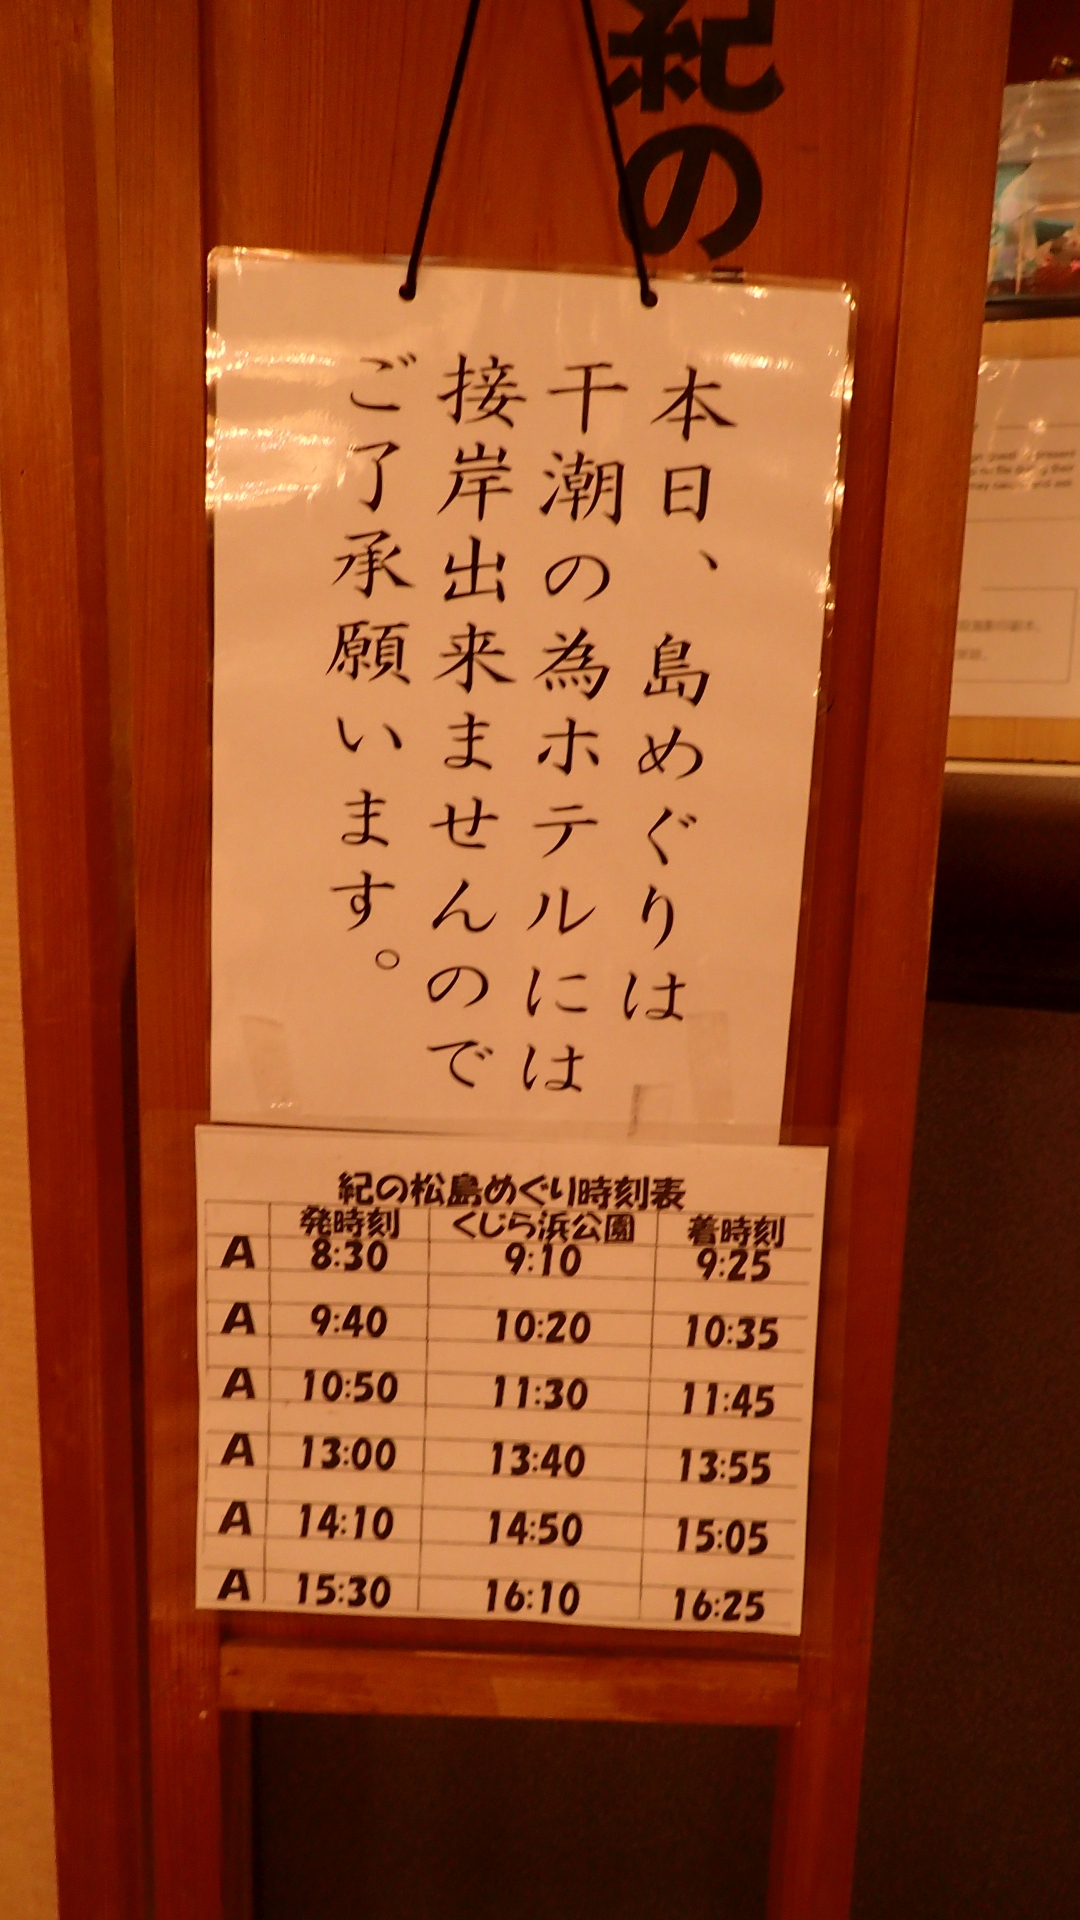 紀の
本日、島めぐりは
干潮の為ホテルには
接岸出来ませんので
ご了承願います。
紀の松島めぐり時刻表
発時刻 くじら浜公園 着時刻
A 8:30 9:10 9:25
A 9:40 10:20 10:35
A 10:50 11:30 11:45
A 13:00 13:40 13:55
A 14:10 14:50 15:05
A 15:30 16:10 16:25